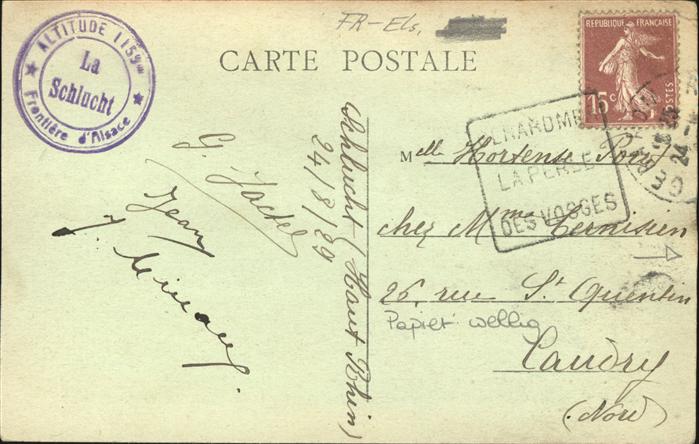 FR-Els.
CARTE POSTALE
ALTITUDE 1159m
La
Schlucht
Frontière d'Alsace
REPUBLIQUE FRANÇAISE
15c
POSTES
LA PERLE
DES VOSGES
GE
24
Schlucht (Haut Rhin)
24/8/29
G.
Jean
J.
Melle Hortense
chez Mme
26, rue St Quentin
Papier wellig
Caudry
(Nord)